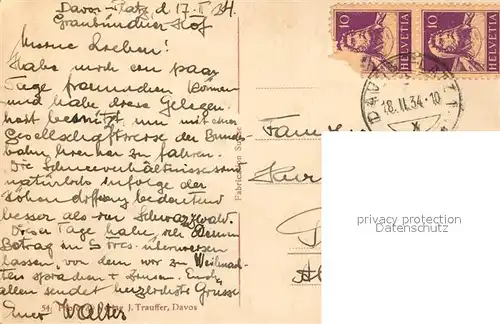 Davos-Platz d 17. II 34.
Graubündner Hof
Meine Lieben!
Habe mich ein paar
Tage freimachen können
und habe diese Gelegen-
heit benützt, um mit einer
Gesellschaftsreise der Bundes
bahn hierher zu fahren.
Die Schneeverhältnisse sind
natürlich infolge der
Höhen bedeutend
besser als im Schwarzwald.
Dieser Tage habe ich
Betrag in überweisen
lassen, von dem wir zu Weihnach-
ten sprachen Euch
allen sendet herzlichste Grüsse
Euer Walter
10 HELVETIA
10 HELVETIA
18. II. 34 - 10
Fabrication Suisse
privacy protection
watermark
54 J. Trauffer, Davos